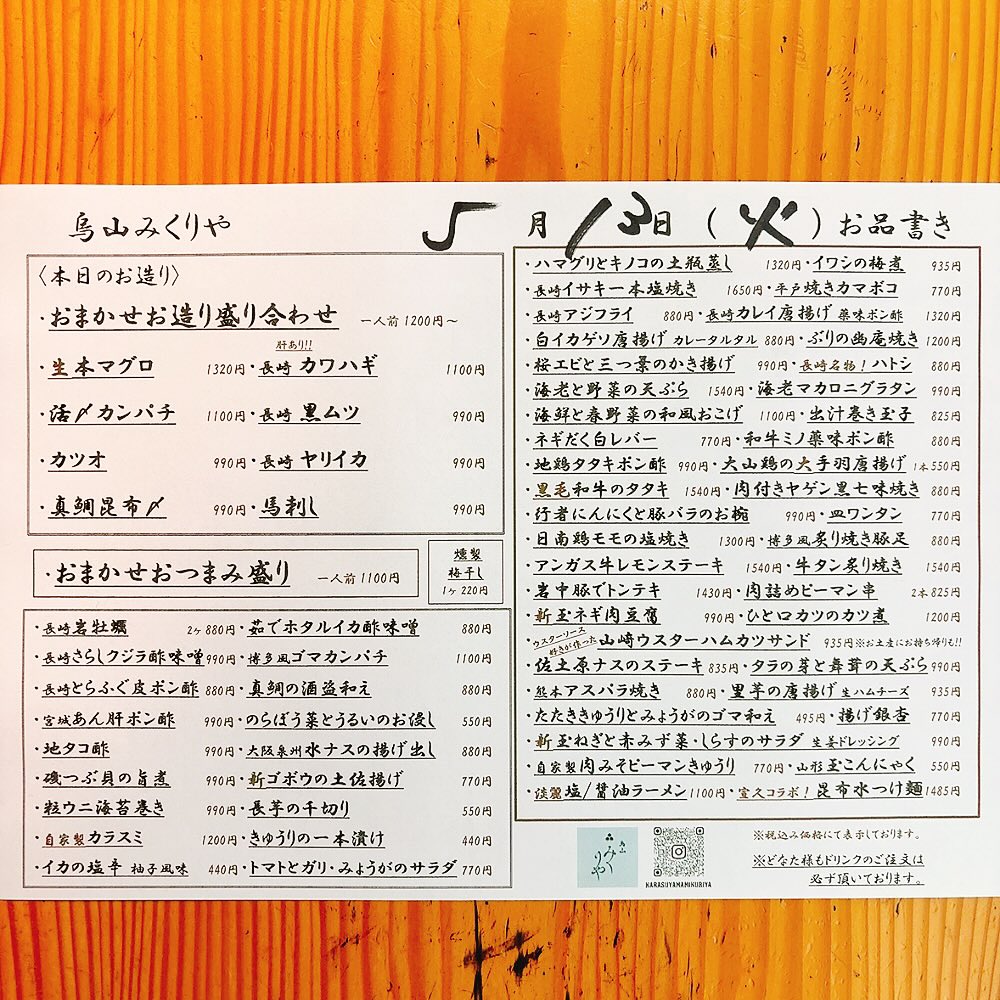 烏山みくりや 5月13日(火)お品書き
〈本日のお造り〉
・おまかせお造り盛り合わせ 一人前1200円～
肝あり!!
・生本マグロ 1320円・長崎 カワハギ 1100円
・活〆カンパチ 1100円・長崎 黒ムツ 990円
・カツオ 990円・長崎 ヤリイカ 990円
・真鯛昆布〆 990円・馬刺し 990円
・おまかせおつまみ盛り 一人前1100円
燻製
梅干し
1ヶ220円
・長崎岩牡蠣 2ヶ880円・茹でホタルイカ酢味噌 880円
・長崎さらしクジラ酢味噌 990円・博多風ゴマカンパチ 1100円
・長崎とらふぐ皮ポン酢 880円・真鯛の酒盗和え 880円
・宮城あん肝ポン酢 990円・のらぼう菜とうるいのお浸し 550円
・地タコ酢 990円・大阪泉州水ナスの揚げ出し 880円
・磯つぶ貝の旨煮 990円・新ゴボウの土佐揚げ 770円
・粒ウニ海苔巻き 990円・長芋の千切り 550円
・自家製カラスミ 1200円・きゅうりの一本漬け 440円
・イカの塩辛 柚子風味 440円・トマトとガリ・みょうがのサラダ 770円
・ハマグリとキノコの土瓶蒸し 1320円・イワシの梅煮 935円
・長崎イサキ一本塩焼き 1650円・平戸焼きカマボコ 770円
・長崎アジフライ 880円・長崎カレイ唐揚げ 薬味ポン酢 1320円
・白イカゲソ唐揚げ カレータルタル 880円・ぶりの幽庵焼き 1200円
・桜エビと三つ葉のかき揚げ 990円・長崎名物!ハトシ 880円
・海老と野菜の天ぷら 1540円・海老マカロニグラタン 990円
・海鮮と春野菜の和風おこげ 1100円・出汁巻き玉子 825円
・ネギだく白レバー 770円・和牛ミノ薬味ポン酢 880円
・地鶏タタキポン酢 990円・大山鶏の大手羽唐揚げ 1本550円
・黒毛和牛のタタキ 1540円・肉付きヤゲン黒七味焼き 880円
・行者にんにくと豚バラのお椀 990円・皿ワンタン 770円
・日南鶏モモの塩焼き 1300円・博多風炙り焼き豚足 880円
・アンガス牛レモンステーキ 1540円・牛タン炙り焼き 1540円
・岩中豚でトンテキ 1430円・肉詰めピーマン串 2本825円
・新玉ネギ肉豆腐 990円・ひと口カツのカツ煮 1200円
・ウスターソース好きが作った 山崎ウスターハムカツサンド 935円※お土産にお持ち帰りも!!
・佐土原ナスのステーキ 835円・タラの芽と舞茸の天ぷら 990円
・熊本アスパラ焼き 880円・里芋の唐揚げ 生ハムチーズ 935円
・たたききゅうりとみょうがのゴマ和え 495円・揚げ銀杏 770円
・新玉ねぎと赤みず菜・しらすのサラダ 生姜ドレッシング 990円
・自家製肉みそピーマンきゅうり 770円・山形玉こんにゃく 550円
・淡麗塩/醤油ラーメン 1100円・宣久コラボ!昆布水つけ麺 1485円
烏山
みくりや
KARASUYAMAMIKURIYA
※税込み価格にて表示しております。
※どなた様もドリンクのご注文は
必ず頂いております。